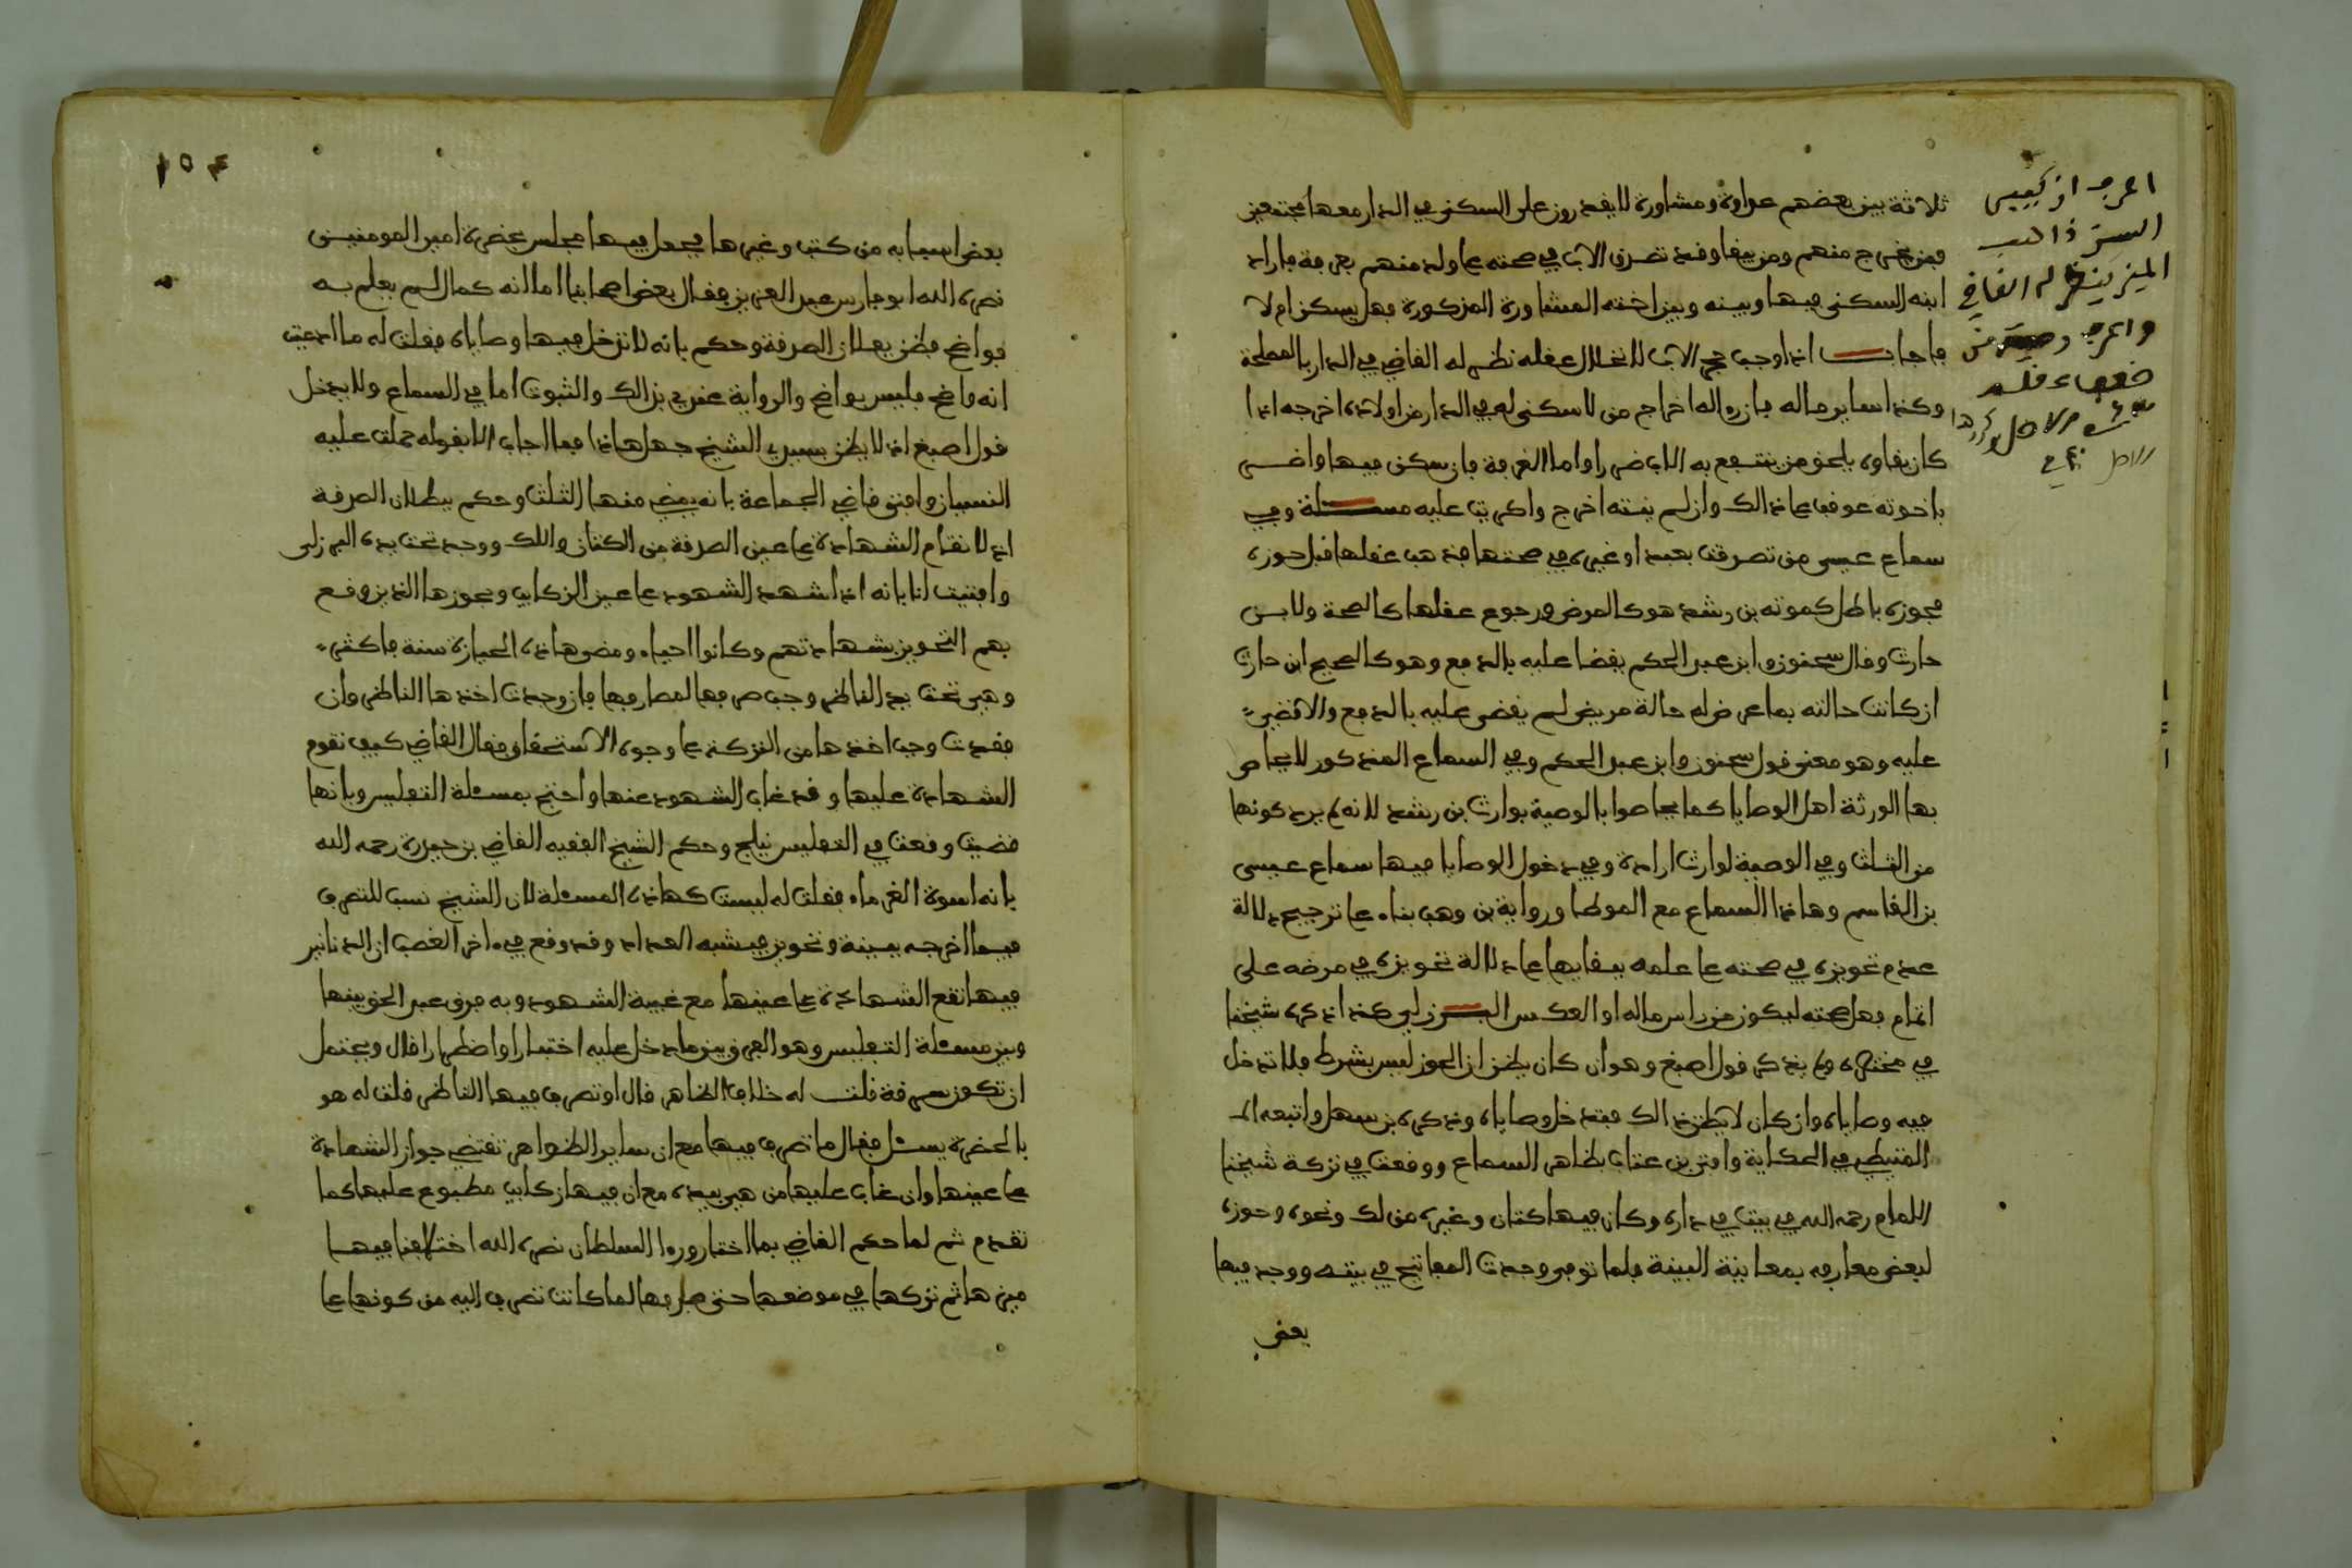 ثلاثة بين بعضهم عداوة ومشاورة لا يقدرون على السكنى في الدار معها مجتمعين
فمن يخرج منهم ومن يبقا وقد تصدق الاب في صحته على ولد منهم بغرفة فاراد
ابنه السكنى فيها وبينه وبين اخته المشاورة المذكورة فهل يسكن ام لا
فاجاب اذا وجب حجر الاب لاختلال عقله نظر له القاضي في الدار بالمصلحة
وكذا ساير ماله فان رءا له اخراج من لا سكنى له في الدار من اولاده اخرجه اذا
كان بقاوه يلحق من ينتفع به الاب ضررا واما الغرفة فان سكن فيها واضر
باخوته عوقب على ذالك وان لم ينته اخرج واكريت عليه مسئلة وفي
سماع عيسى من تصدقت بعبد او غيره في صحتها فذهب عقلها قبل حوزه
فحوزه باطل كموته بن رشد هو كالمرض ورجوع عقلها كالصحة ولابن
حارث وقال سحنون وابن عبد الحكم يقضا عليه بالدفع وهو كالصحيح ابن حارث
ان كانت حالته بما عرض له حالة مريض لم يقض عليه بالدفع والا قضي
عليه وهو معنى قول سحنون وابن عبد الحكم وفي السماع المذكور لا يحاص
بها الورثة اهل الوصايا كما يحاصوا بالوصية بوارث بن رشد لانه لم يرد كونها
من الثلث وفي الوصية لوارث اراده وفي دخول الوصايا فيها سماع عيسى
بن القاسم وهاذا السماع مع الموطا ورواية بن وهب بناء على ترجيح دلالة
عدم تحويزه في صحته على علمه ببقايها على دلالة تحويزه في مرضه على
اتمام فعل صحته ليكون من راس ماله او العكس البرزلي هكذا ذكره شيخنا
في مختصره ولم يذكر قول اصبغ وهو ان كان يظن ان الحوز ليس بشرط فلا تدخل
فيه وصاياه وان كان لا يظن ذالك فتدخل وصاياه وذكره بن سهل واتبعه
المتيطي في الحكاية وافتى بن عتاب بظاهر السماع ووقعت في تركة شيخنا
الامام رحمه الله في بيت في داره وكان فيها كتان وغيره من لك ونحوه وحوزه
لبعض معارفه بمعاينة البينة فلما توفي وجدت المفاتيح في بيته ووجد فيها
بعض
اعرف
الستر
القاضي
واعرف
فقهاء
الاصل
١٥٤
بعض اسبابه من كتب وغيرها فجعل فيها مجلس بحضرة امير المومنين
نصره الله ابو فارس عبد العزيز فقال بعض اصحابنا اما انه كمال لم يعلم به
فواضح فظن بطلان الصدقة وحكم بانه لا تدخل فيها وصاياه فقلت له ما ادعيت
انه واضح فليس بواضح والرواية عندي بذالك والثبوت اما في السماع ولا يدخل
قول اصبغ اذ لا يظن بسيدي الشيخ جهل هاذا فما اجاب الا بقوله حملت عليه
النسيان وافتى قاضي الجماعة بانه يمضي منها الثلث وحكم ببطلان الصدقة
اذ لا تقام الشهادة على عين الصدقة من الكتان واللك ووجد تحت يده البرزلي
وافتيت انا بانه اذا شهد الشهود على عين الركايب وبحوزها الذين وقع
بهم التحويز بشهادتهم وكانوا احياء ومضى هاذه الحيازة سنة فاكثر
وهي تحت يد الناظر وجب صرفها لمصارفها فان وجدت اخذها الناظر وان
فقدت وجب اخذها من التركة على وجوه الاستحقاق فقال القاضي كيف تقوم
الشهادة عليها وقد غاب الشهود عنها واحتج بمسئلة التفليس وبانها
قضيت وقعت في التفليس نيلج وحكم الشيخ الفقيه القاضي بن حيدرة رحمه الله
بانه اسوة الغرماء فقلت له ليست كهاذه المسئلة لان الشيخ نسب للتصرف
فيما اخرجه ببينة وتحويز فيشبه العداد وقد وقع في ءاخر الغصب ان الدنانير
فيها تقع الشهادة على عينها مع غيبة الشهود وبه فرق عبد الحق بينها
وبين مسئلة التفليس وهو الفرق بين ما دخل عليه اختيارا واضطرارا قال ويحتمل
ان تكون سرقة قلت له خلاف الظاهر قال او تصرف فيها الناظر قلت له هو
بالحضرة يسئل فقال ما تصرف فيها مع ان ساير الظواهر تقتضي جواز الشهادة
على عينها وان غاب عليها من هي بيده مع ان فيها ركايب مطبوع عليها كما
تقدم ثم لما حكم القاضي بما اختار ورءا السلطان نصره الله اختلافنا فيها
ميزها ثم تركها في موضعها حتى صرفها لما كانت تصرف اليه من كونها على